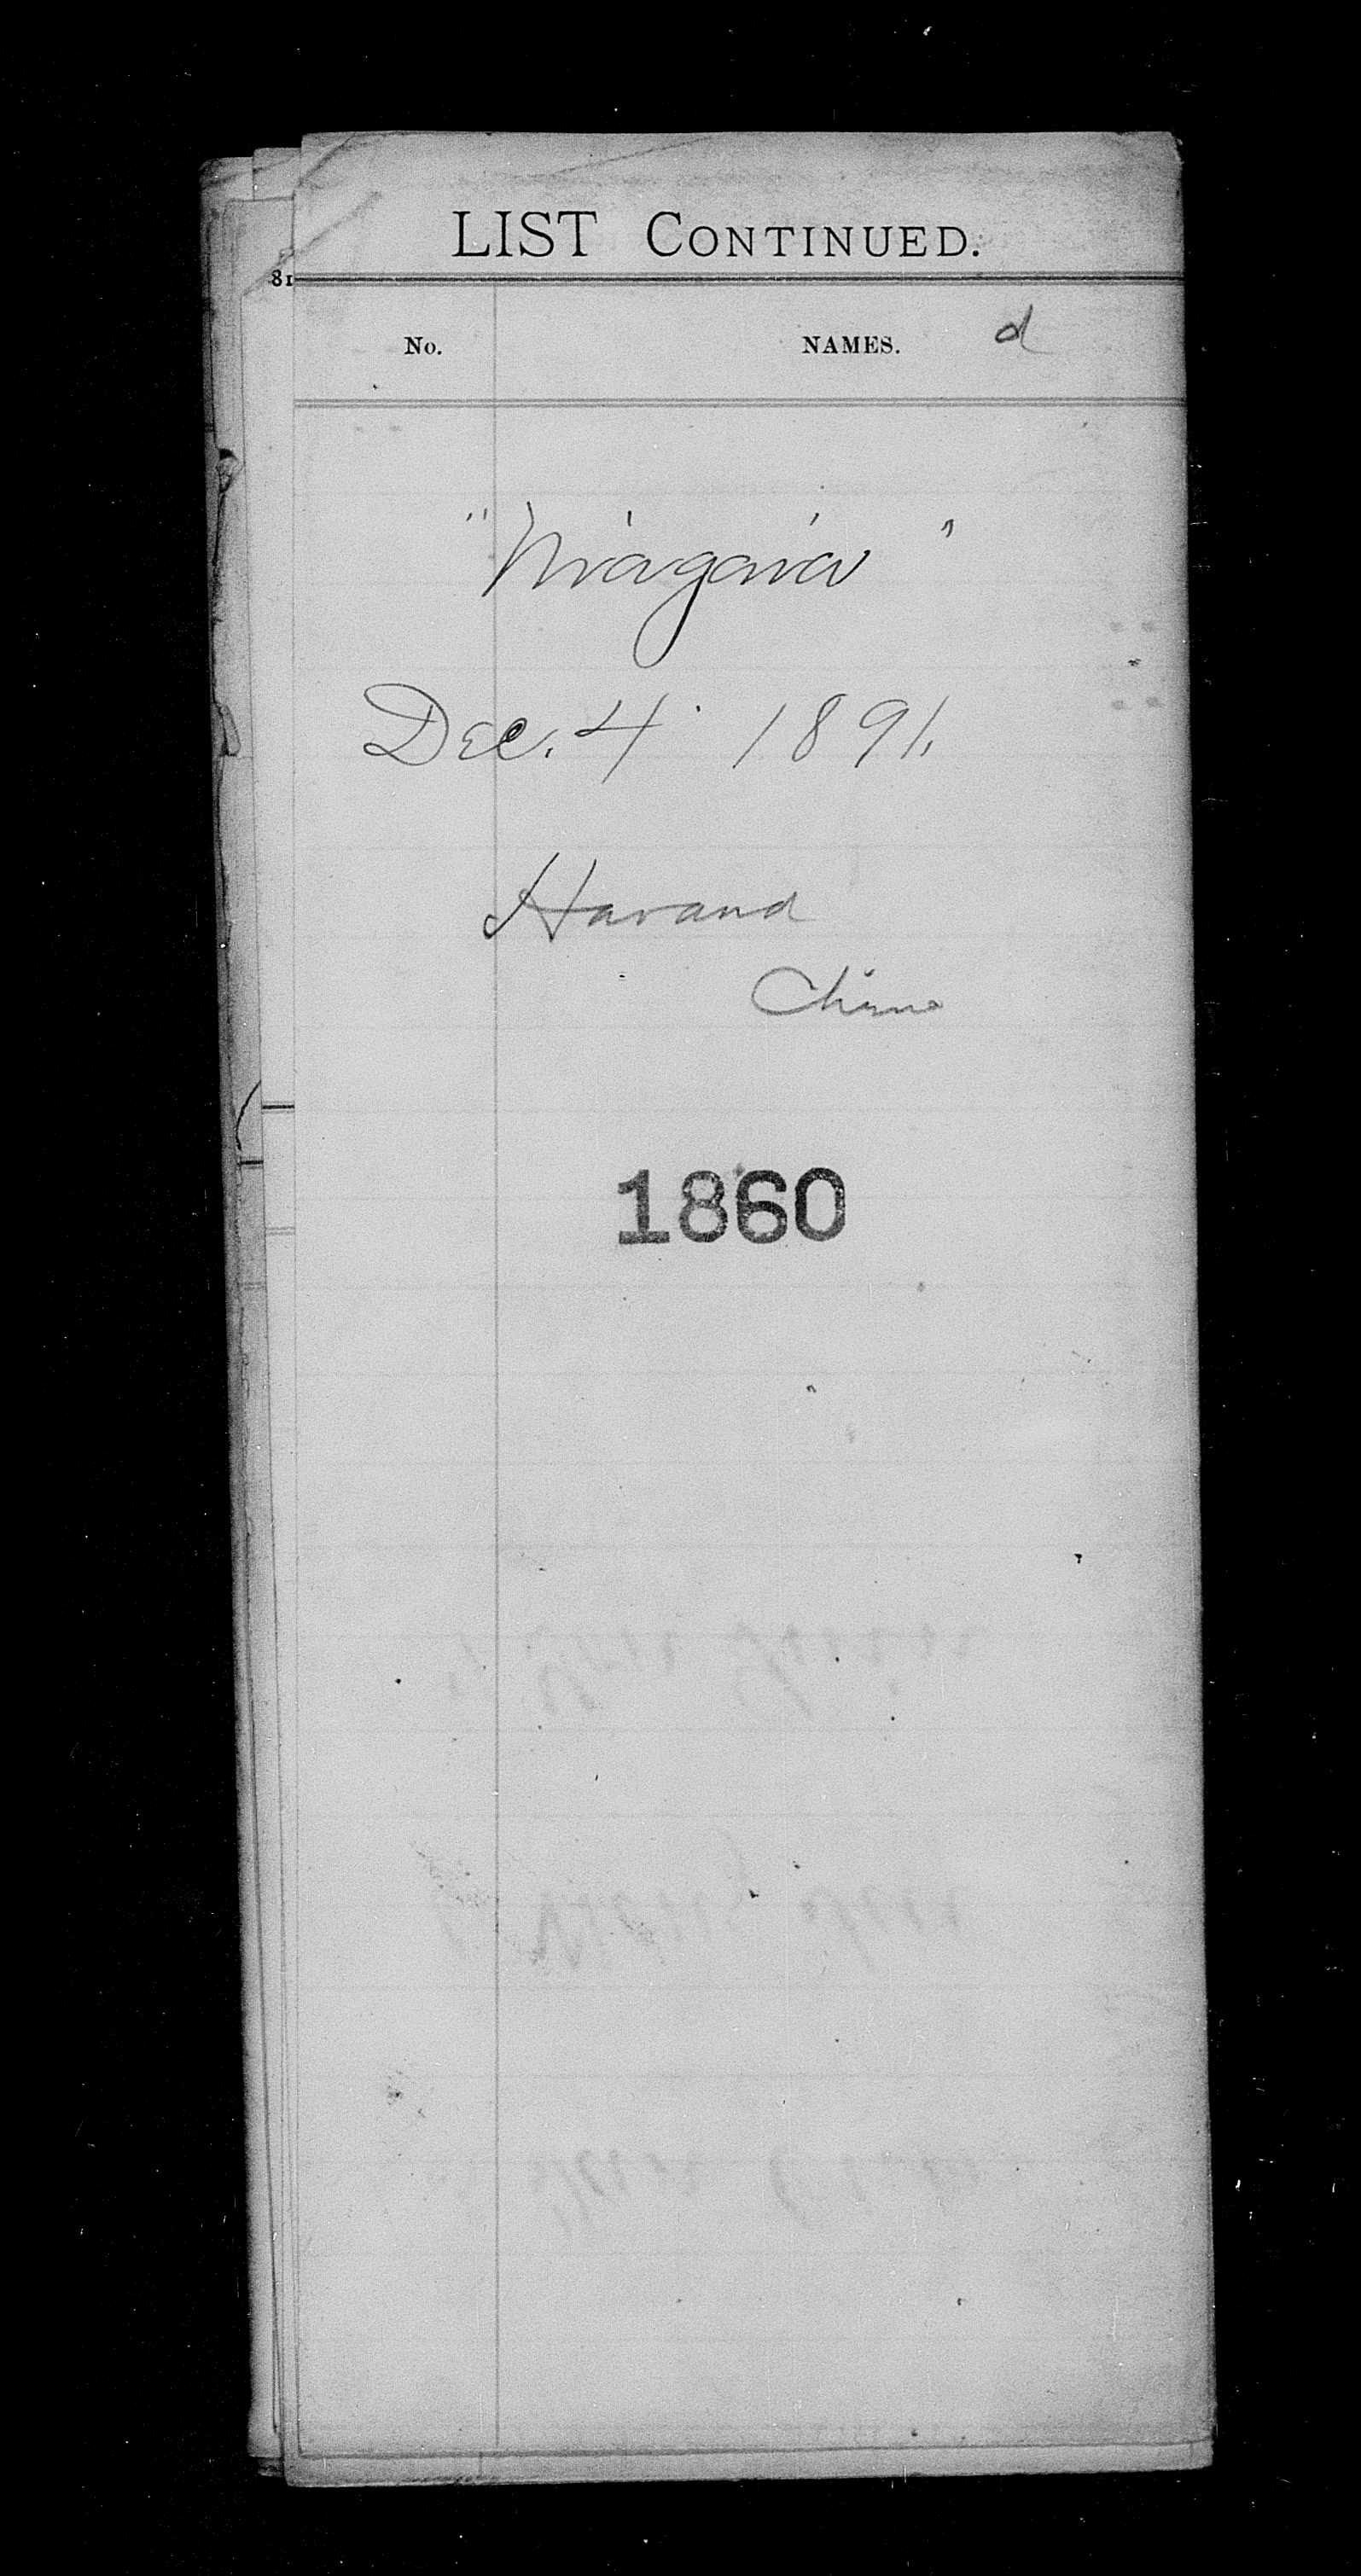 LIST CONTINUED.
81
No. NAMES. d
"Niagara"
Dec. 4 1891.
Havana
1860